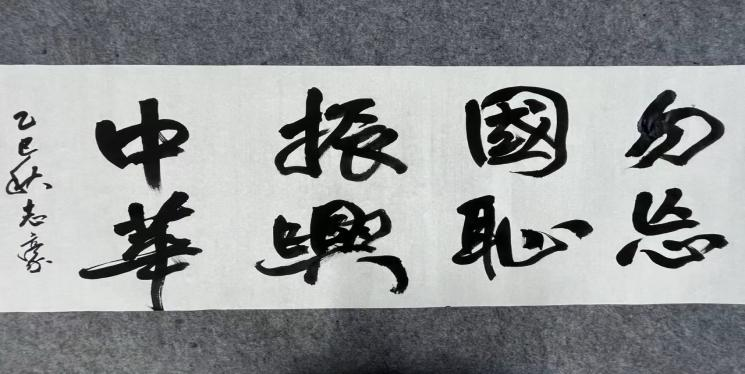 勿忘
國恥
振興
中華
乙巳秋志豪